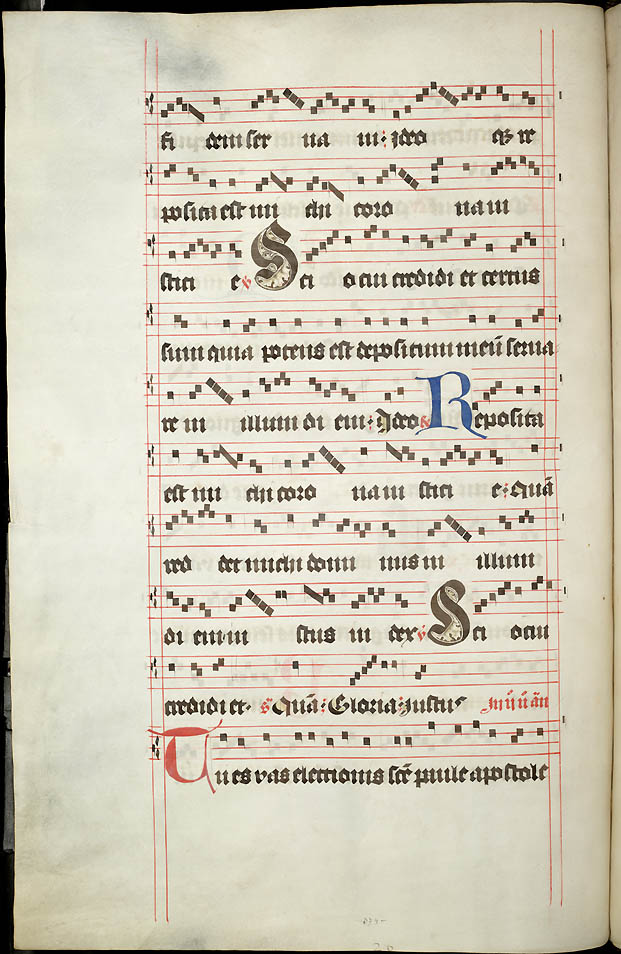 fi dem ser ua ui: ideo qz re
posita est mi chi coro nam
stici e v Sci o cui credidi et certus
sum quia potens est depositum meū serua
re in illum di em: Ideo R Reposita
est mi chi coro nam stici e: Quā
red det michi domi nus in illum
di em iu stus iu dex v Sci o cui
credidi et. Quā: Gloria: Justus
Tu es vas electionis scē paule apostole